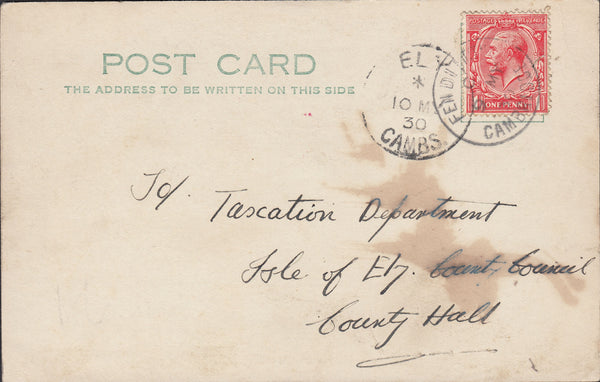 POST CARD
THE ADDRESS TO BE WRITTEN ON THIS SIDE
POSTAGE REVENUE
ONE PENNY
ELY
*
10 MY
30
CAMBS.
FEN DI
CAMB
To/. Taxcation Department
Isle of Ely. County Council
County Hall